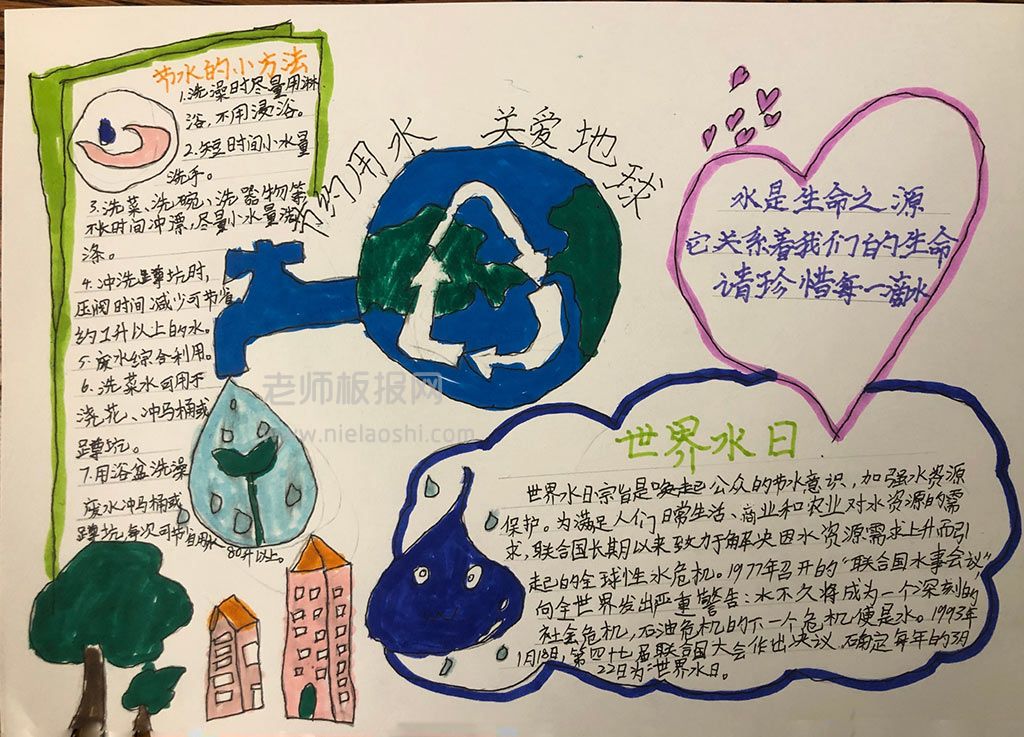 节水的小方法
1.洗澡时尽量用淋
浴,不用浸浴。
2.短时间小水量
洗手。
3.洗菜、洗碗、洗器物等
不长时间冲漂,尽量小水量
涤。
4.冲洗蹲坑时,
压阀时间减少可节省
约1升以上的水。
5.废水综合利用。
6.洗菜水可用于
浇花、冲马桶或
蹲坑。
7.用浴盆洗澡
废水冲马桶或
蹲坑,每次可节省用水
80升以上。
节约用水 关爱地球
水是生命之源
它关系着我们的生命
请珍惜每一滴水
老师板报网
www.nielaoshi.com
世界水日
世界水日宗旨是唤起公众的节水意识、加强水资源
保护。为满足人们日常生活、商业和农业对水资源的需
求,联合国长期以来致力于解决因水资源需求上升而引
起的全球性水危机。1977年召开的"联合国水事会议",
向全世界发出严重警告:水不久将成为一个深刻的
社会危机,石油危机的下一个危机便是水。1993年
1月18日,第四十七届联合国大会作出决议,确定每年的3月
22日为"世界水日。